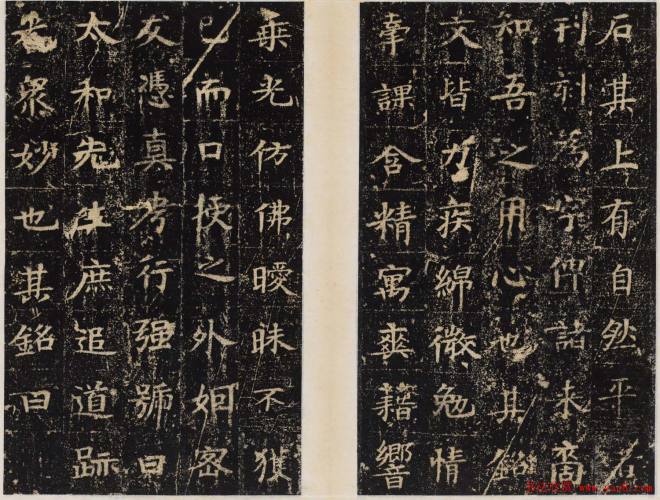 石其上有自然平石
刊刻為字俾詔来裔
知吾之用心也其銘
文皆力疾綿微勉情
牽課含精寓爽藉響
垂光仿佛曖昧不獲
已而口授之外姻密
友憑真考行强號曰
太和先生庶追道跡
光衆妙也其銘曰